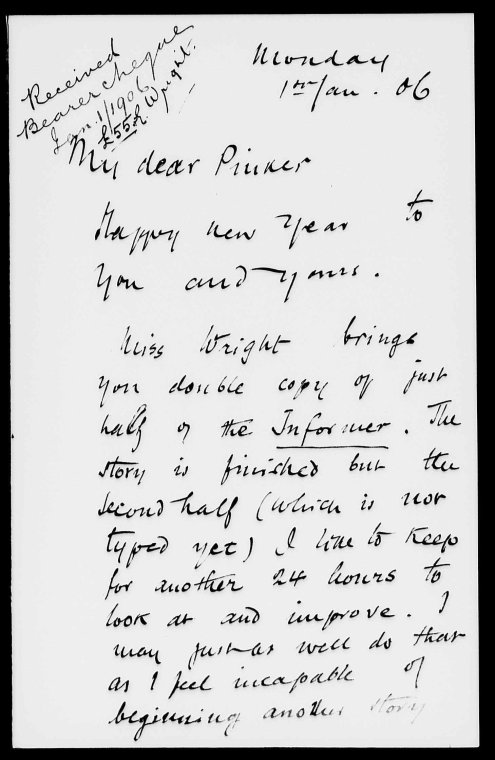 Received
Bearer cheque
Jan. 1/1906
£55 L. Wright.
Monday
1st Jan. 06
My dear Pinker
Happy new Year to
You and yours.
Miss Wright brings
you double copy of just
half of the Informer. The
story is finished but the
second half (which is not
typed yet) I like to keep
for another 24 hours to
look at and improve. I
may just as well do that
as I feel incapable of
beginning another story